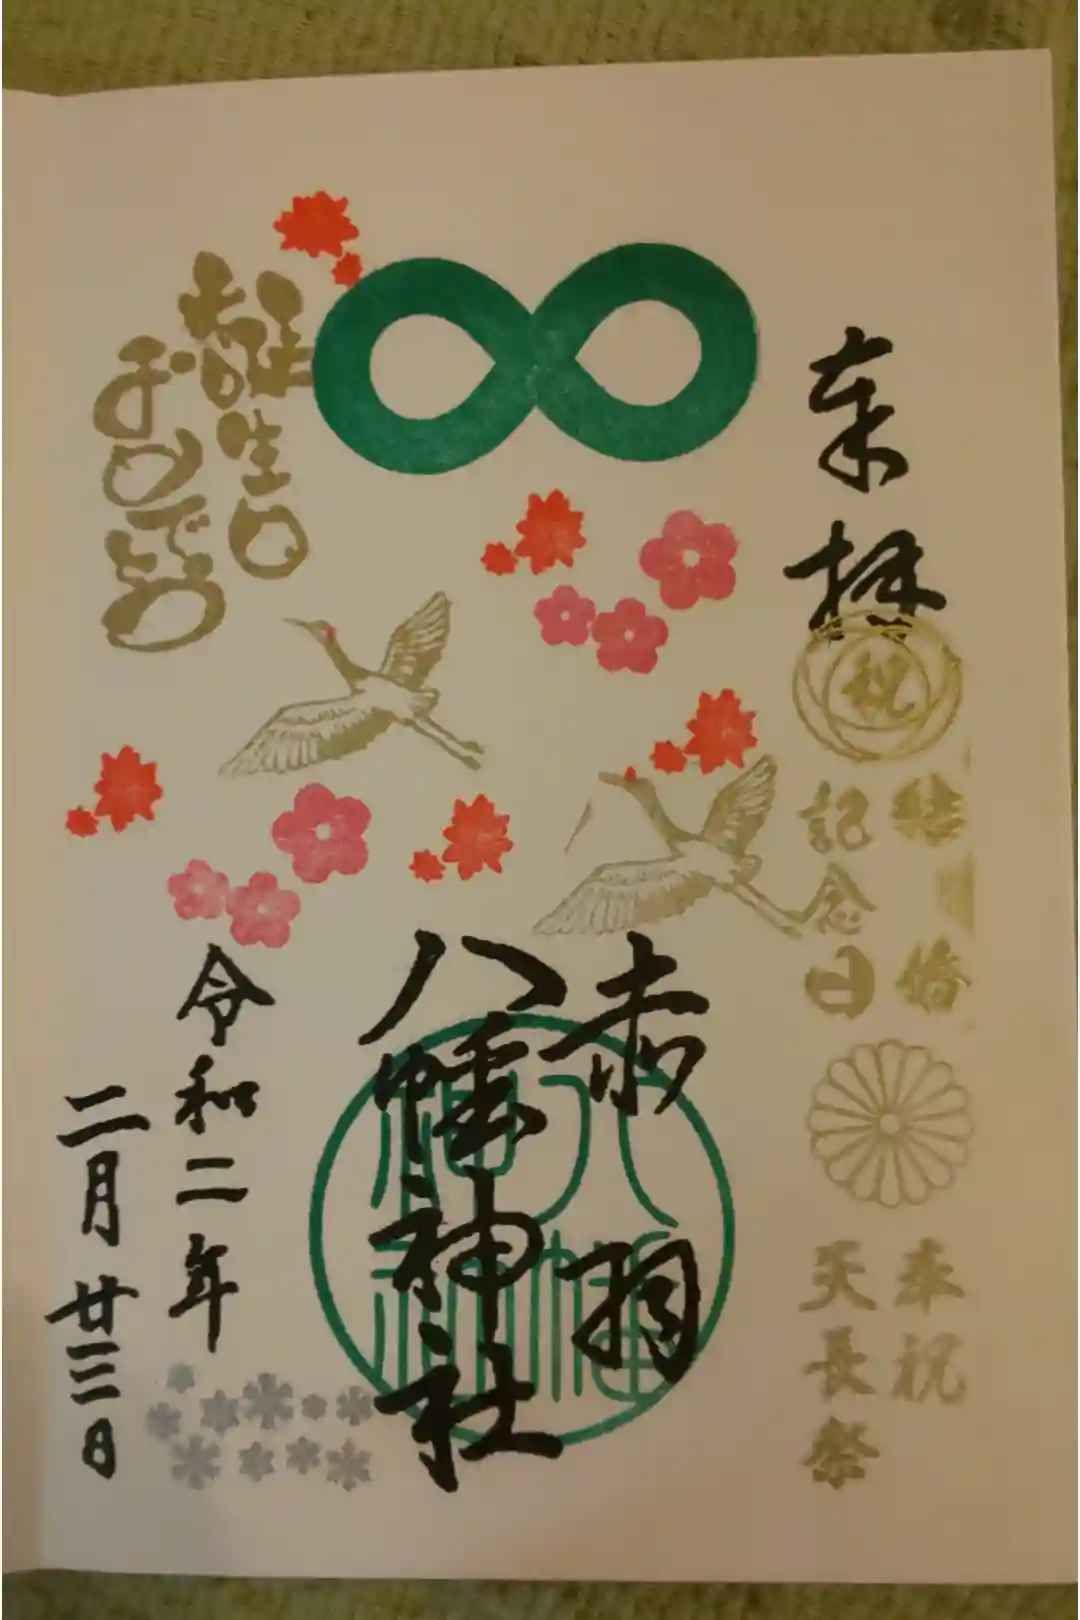 奉拝
祝
結婚
記念日
奉祝
天長祭
赤羽
八幡神社
八幡
神社
誕生日
おめでとう
令和二年
二月廿三日